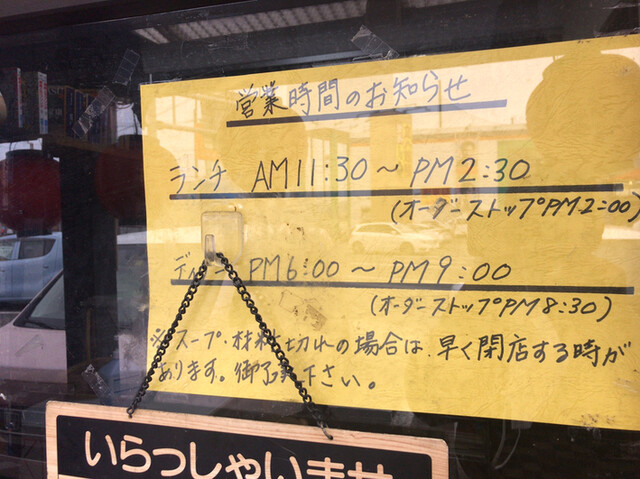 営業時間のお知らせ
ランチ AM11:30～PM2:30
(オーダーストップPM2:00)
PM6:00～PM9:00
(オーダーストップPM8:30)
※スープ・材料切れの場合は、早く閉店する時が
あります。御了承下さい。
いらっしゃいませ